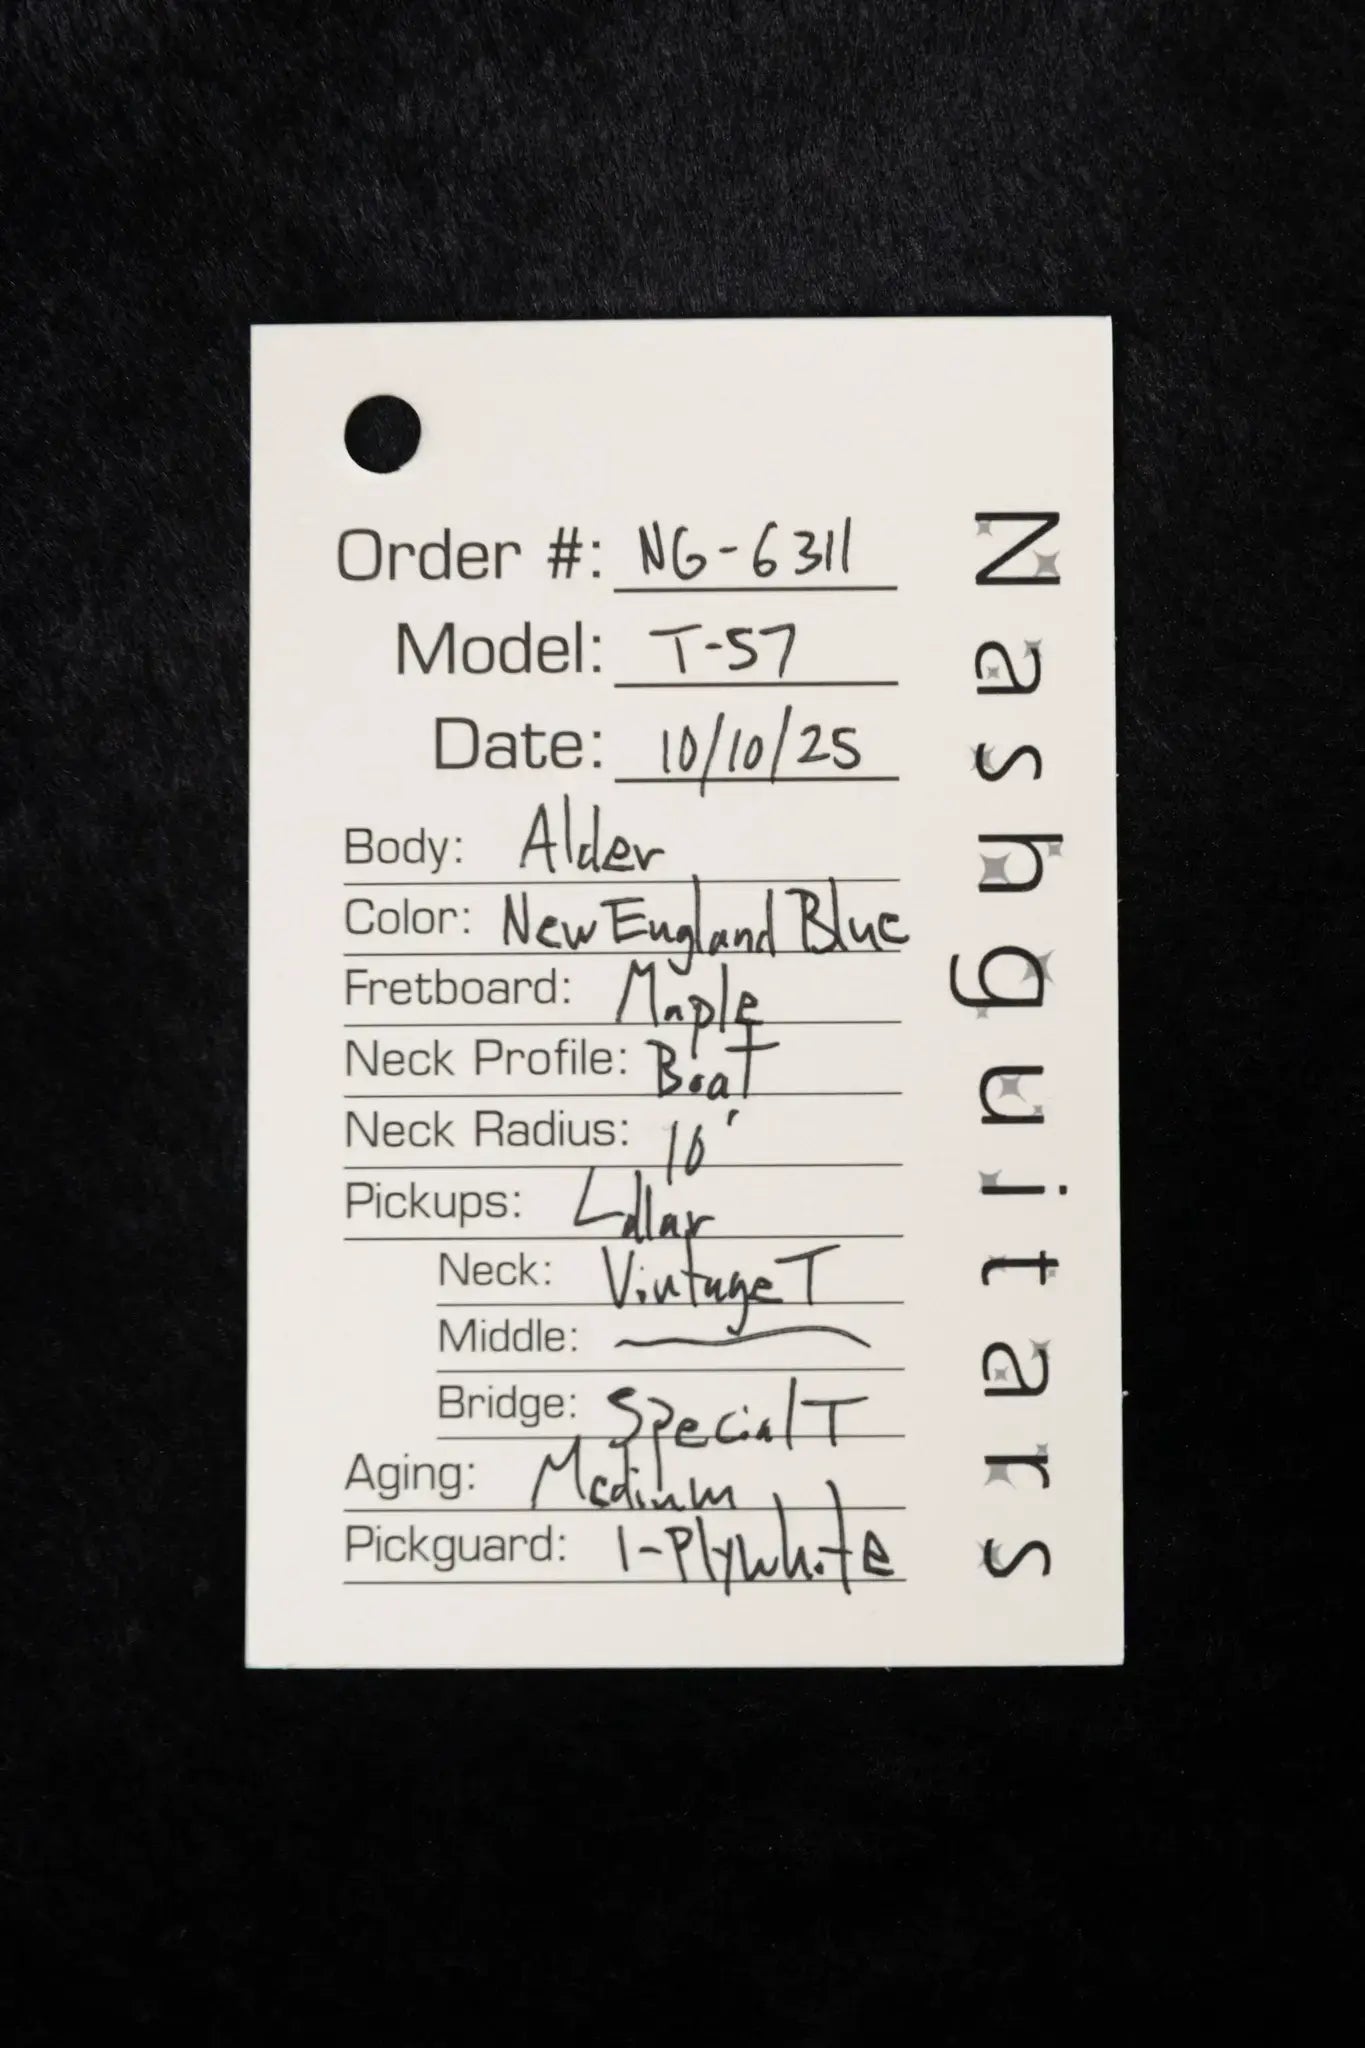 Order #: NG-6311
Model: T-57
Date: 10/10/25
Body: Alder
Color: New England Blue
Fretboard: Maple
Neck Profile: Boat
Neck Radius: 10'
Pickups: Lollar
Neck: Vintage T
Middle:
Bridge: Special T
Aging: Medium
Pickguard: 1-Ply white
Nashguitars